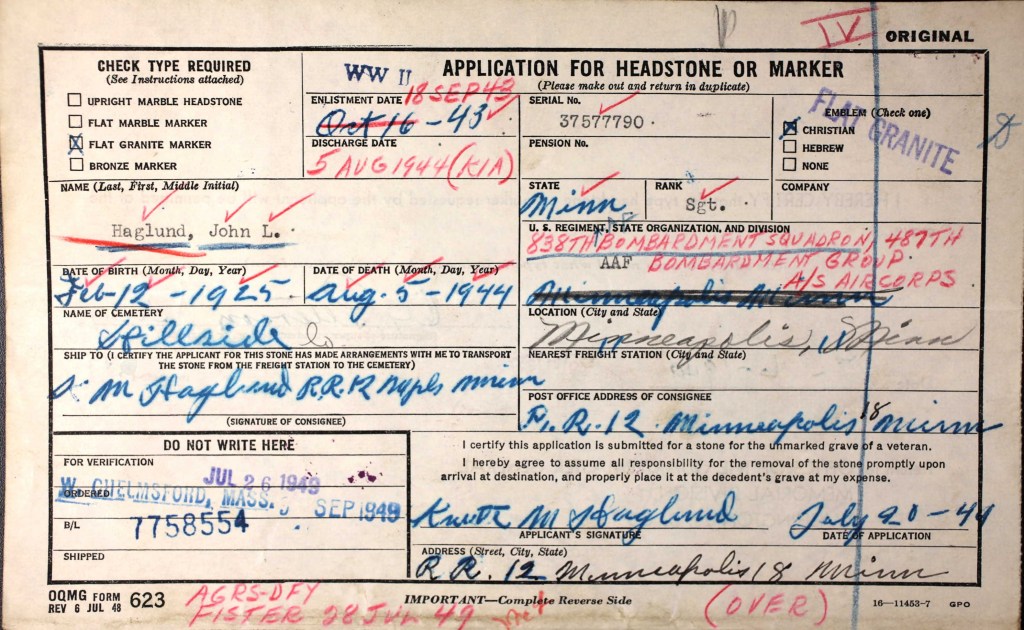 IV
ORIGINAL
CHECK TYPE REQUIRED
(See Instructions attached)
UPRIGHT MARBLE HEADSTONE
FLAT MARBLE MARKER
X FLAT GRANITE MARKER
BRONZE MARKER
WW II
APPLICATION FOR HEADSTONE OR MARKER
(Please make out and return in duplicate)
ENLISTMENT DATE 18 SEP 43
Oct 16 - 43
DISCHARGE DATE
5 AUG 1944 (KIA)
SERIAL No.
37577790
PENSION No.
EMBLEM (Check one)
X CHRISTIAN
HEBREW
NONE
FLAT GRANITE
NAME (Last, First, Middle Initial)
Haglund, John L.
STATE
Minn
RANK
Sgt.
COMPANY
U. S. REGIMENT, STATE ORGANIZATION, AND DIVISION
838TH BOMBARDMENT SQUADRON, 487TH
AAF BOMBARDMENT GROUP
A/S AIRCORPS
Minneapolis Minn
DATE OF BIRTH (Month, Day, Year)
Feb-12-1925
DATE OF DEATH (Month, Day, Year)
Aug. 5-1944
NAME OF CEMETERY
Hillside
LOCATION (City and State)
Minneapolis, Minn
SHIP TO (I CERTIFY THE APPLICANT FOR THIS STONE HAS MADE ARRANGEMENTS WITH ME TO TRANSPORT
THE STONE FROM THE FREIGHT STATION TO THE CEMETERY)
K M Haglund R.R. 12 Mpls Minn
(SIGNATURE OF CONSIGNEE)
NEAREST FREIGHT STATION (City and State)
POST OFFICE ADDRESS OF CONSIGNEE
R. R. 12 Minneapolis 18 Minn
DO NOT WRITE HERE
FOR VERIFICATION
JUL 26 1949
ORDERED
W. CHELMSFORD, MASS. SEP 1949
B/L
7758554
SHIPPED
I certify this application is submitted for a stone for the unmarked grave of a veteran.
I hereby agree to assume all responsibility for the removal of the stone promptly upon
arrival at destination, and properly place it at the decedent's grave at my expense.
M Haglund
July 20-49
APPLICANT'S SIGNATURE
DATE OF APPLICATION
ADDRESS (Street, City, State)
R.R. 12 Minneapolis 18 Minn
OQMG FORM
REV 6 JUL 48 623
AGRS-DFY
FISTER 28 JUL 49
IMPORTANT—Complete Reverse Side
(OVER)
16—11453-7 GPO